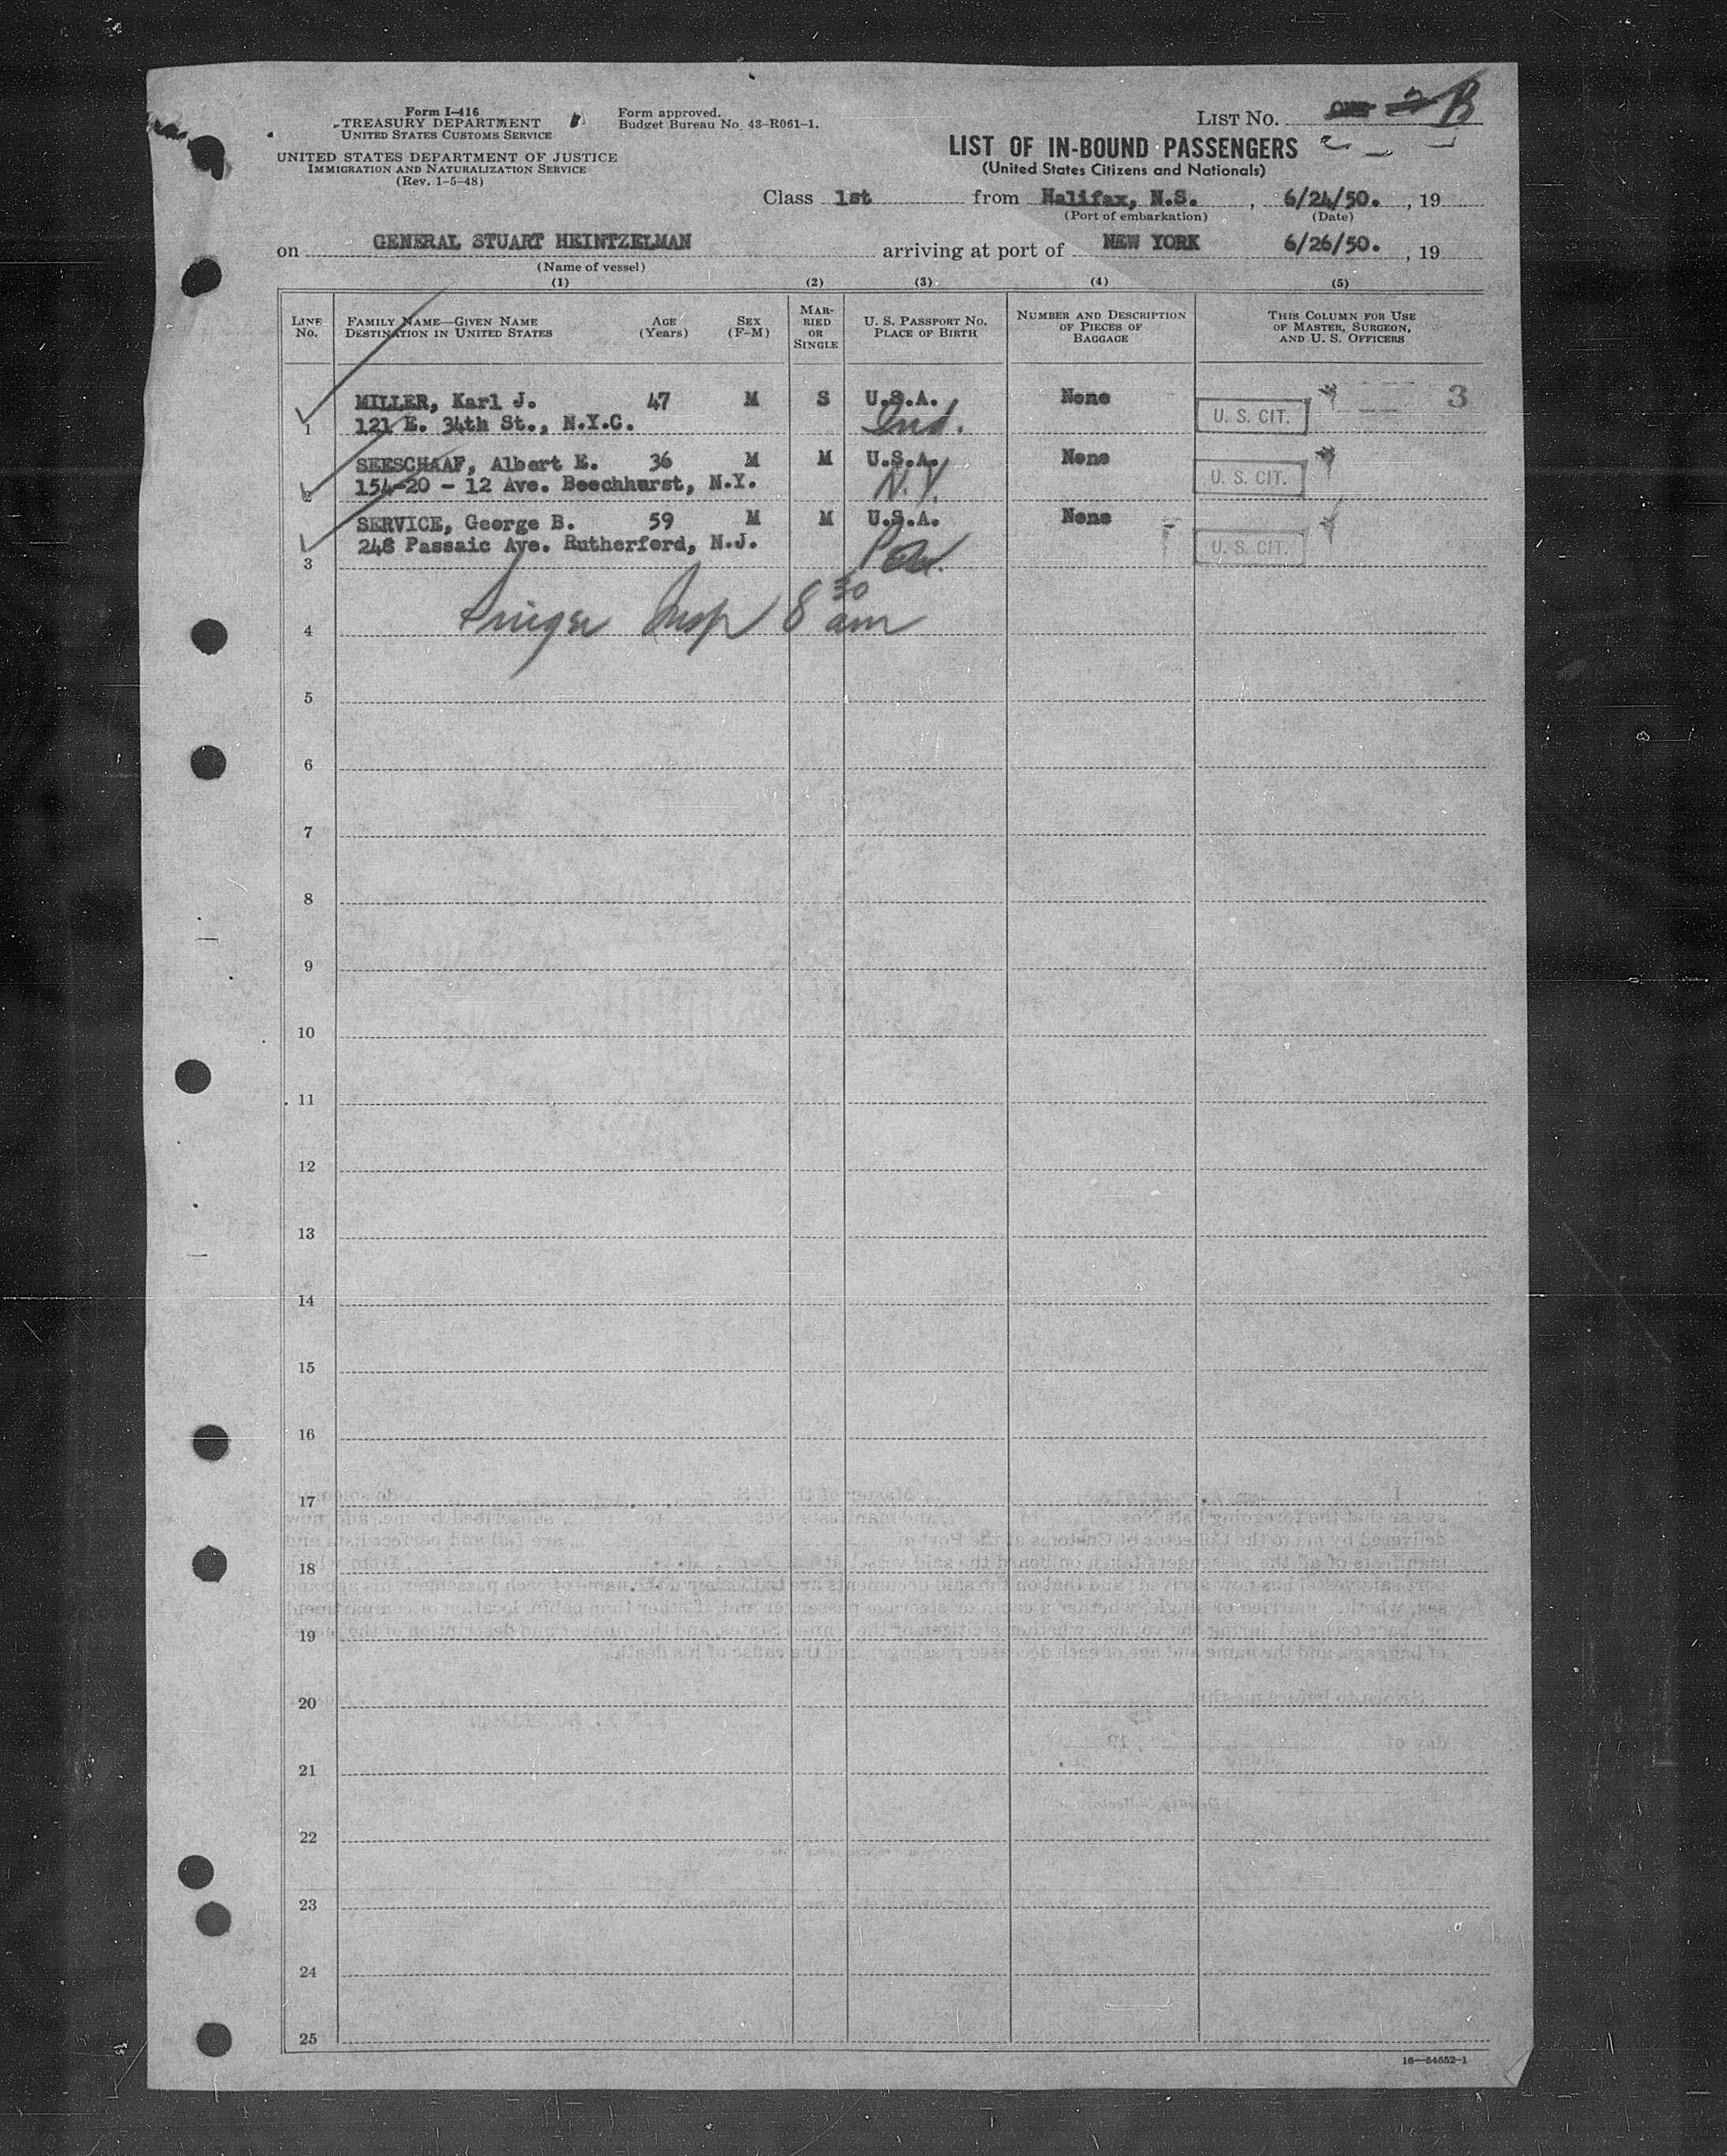 Form I-416
TREASURY DEPARTMENT
UNITED STATES CUSTOMS SERVICE
UNITED STATES DEPARTMENT OF JUSTICE
IMMIGRATION AND NATURALIZATION SERVICE
(Rev. 1-5-48)
Form approved.
Budget Bureau No. 43-R061-1.
LIST NO. B
LIST OF IN-BOUND PASSENGERS
(United States Citizens and Nationals)
Class 1st from Halifax, N.S. , 6/24/50. , 19
(Port of embarkation) (Date)
on GENERAL STUART HEINTZELMAN arriving at port of NEW YORK 6/26/50. , 19
(Name of vessel)
(1) (2) (3) (4) (5)
LINE No. FAMILY NAME—GIVEN NAME DESTINATION IN UNITED STATES AGE (Years) SEX (F-M) MARRIED OR SINGLE U. S. PASSPORT NO. PLACE OF BIRTH NUMBER AND DESCRIPTION OF PIECES OF BAGGAGE THIS COLUMN FOR USE OF MASTER, SURGEON, AND U. S. OFFICERS
MILLER, Karl J. 47 M S U.S.A. None 3
1 121 E. 34th St., N.Y.C. Ind. U. S. CIT.
SEESCHAAF, Albert E. 36 M M U.S.A. None
2 154-20 - 12 Ave. Beechhurst, N.Y. N.Y. U. S. CIT.
SERVICE, George B. 59 M M U.S.A. None
248 Passaic Ave. Rutherford, N.J. Pa. U. S. CIT.
3
4 Insp 8 30 am
5
6
7
8
9
10
11
12
13
14
15
16
17
18
19
20
21
22
23
24
25
16—54652-1